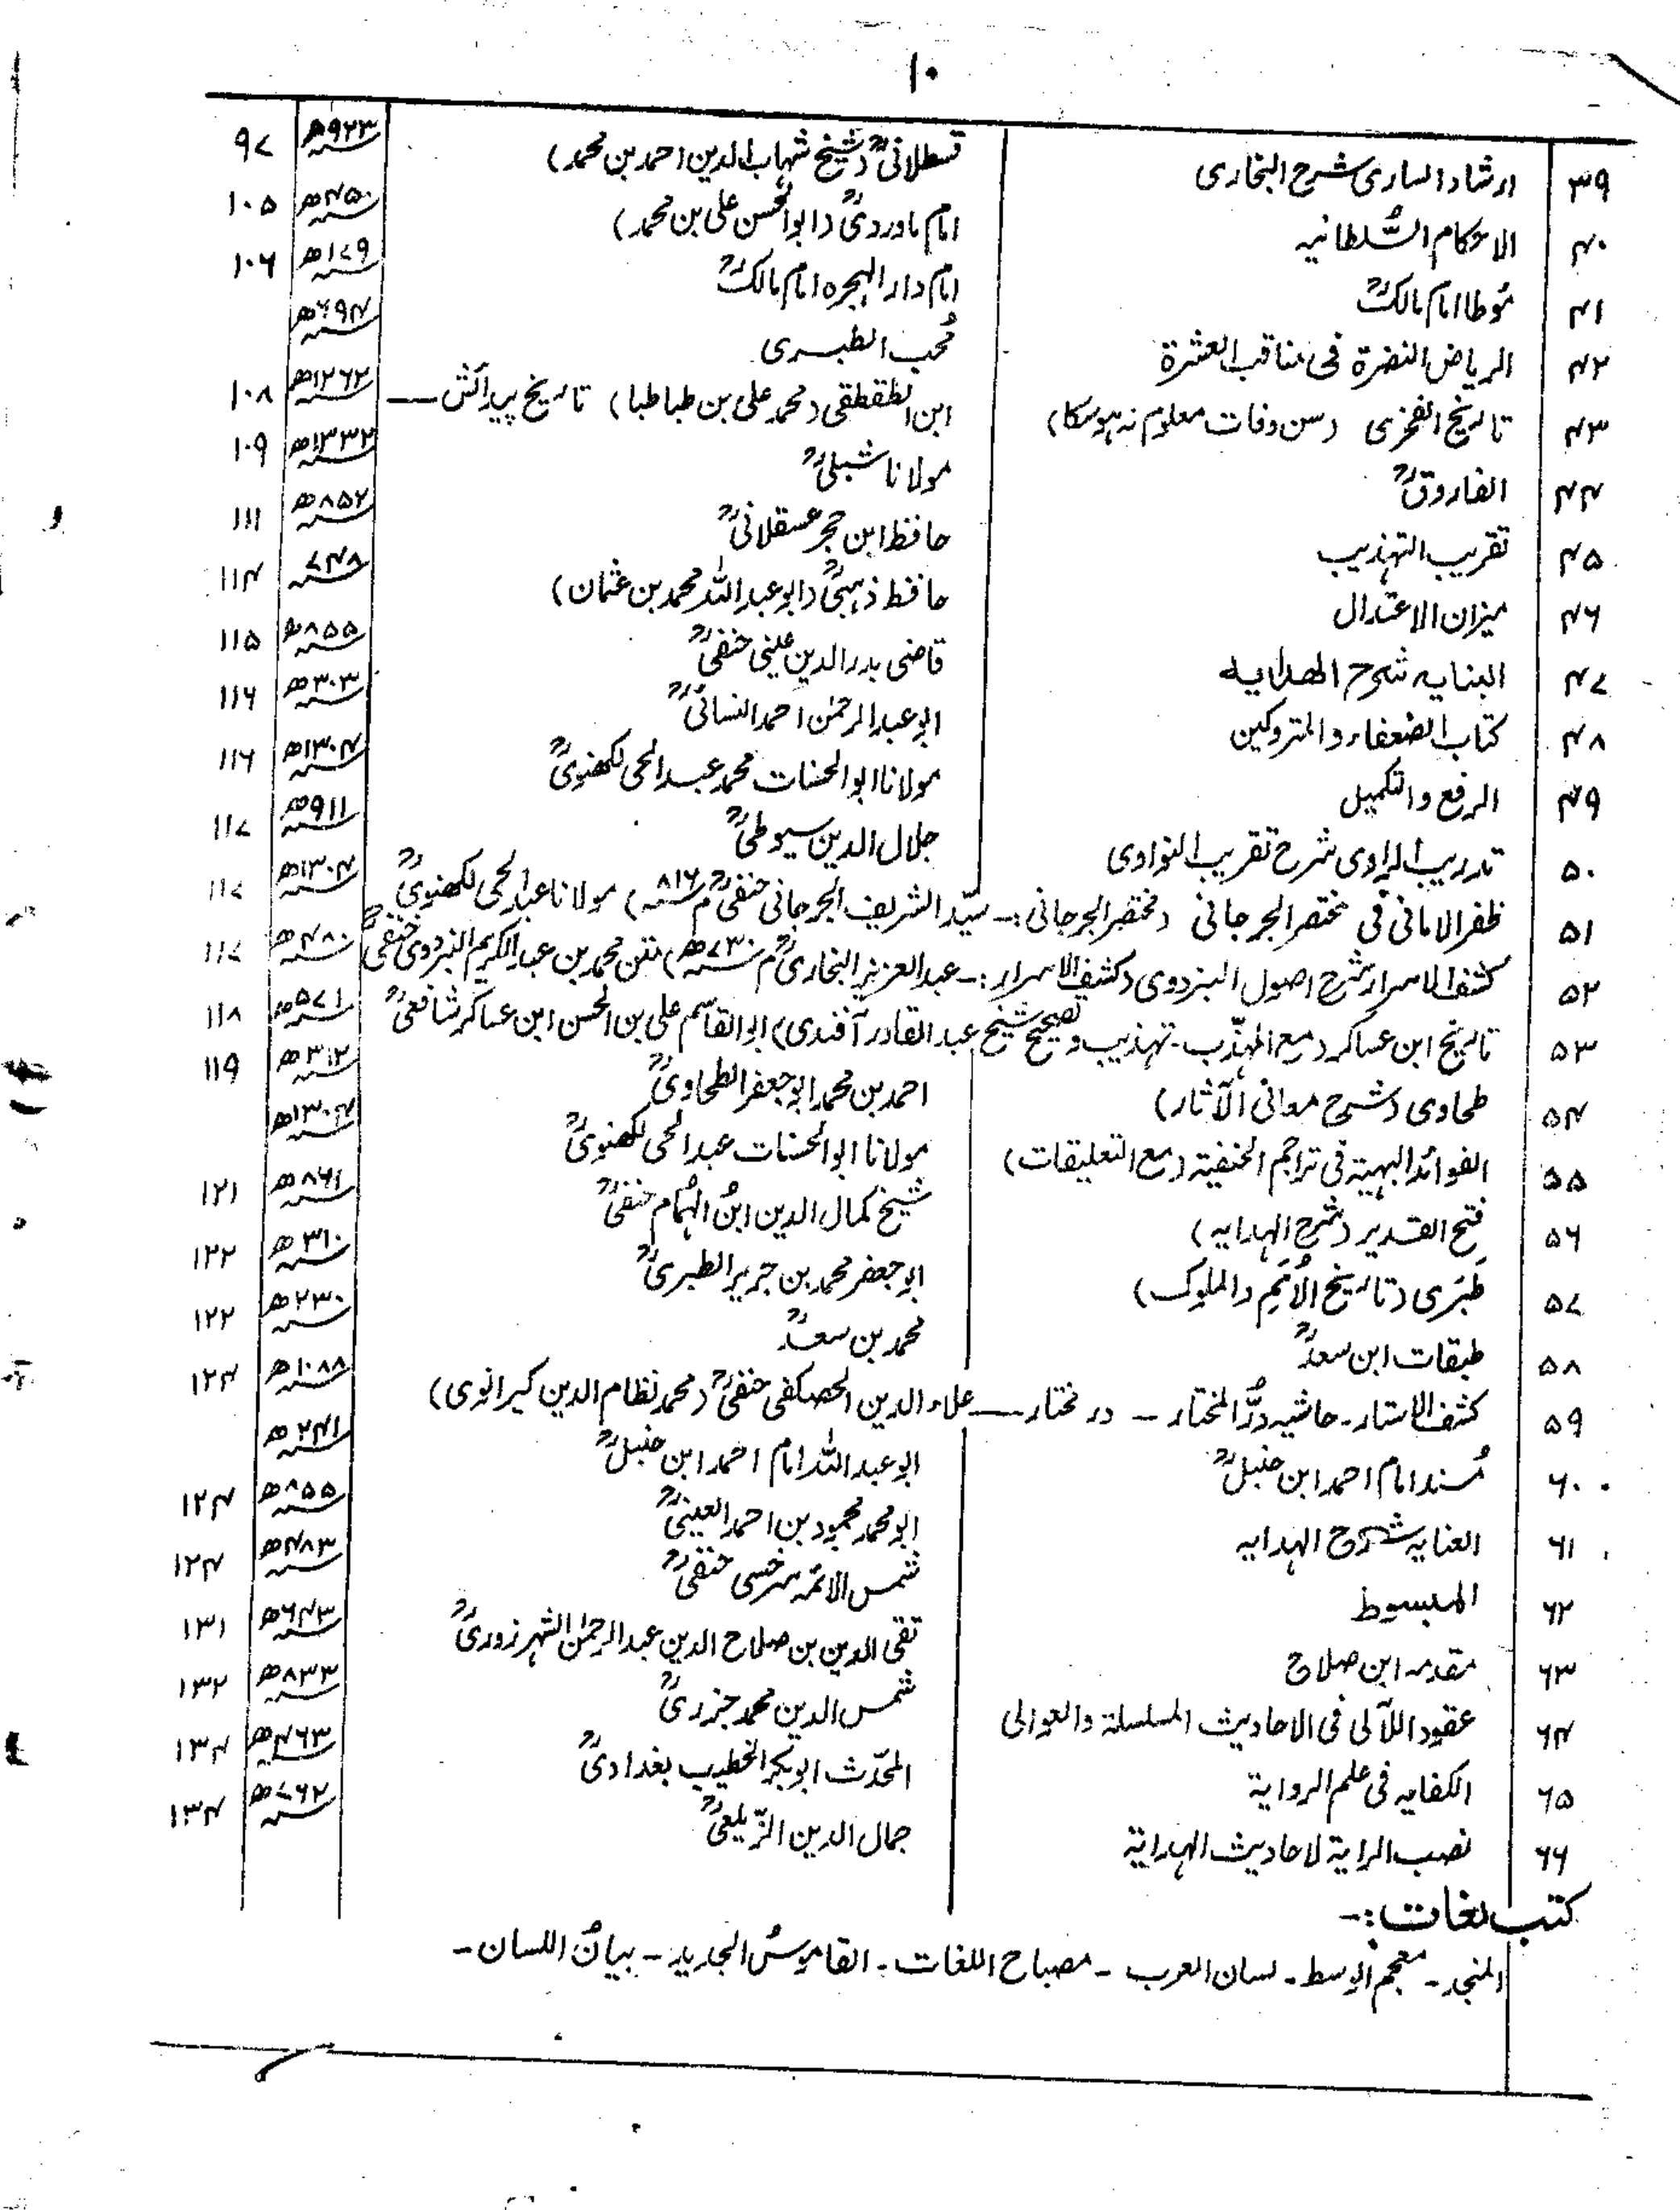 ۱۰
۳۹ ارشاد الساری شرح البخاری قسطلانیؒ (شیخ شہاب الدین احمد بن محمد) ۹۲۳ھ ۹۷
۴۰ الاحکام السُّلطانیہ امام ماوردیؒ (ابوالحسن علی بن محمد) ۴۵۰ھ ۱۰۵
۴۱ مُوطا امام مالکؒ امام دار الہجرہ امام مالکؒ ۱۷۹ھ ۱۰۶
۴۲ الریاض النضرۃ فی مناقب العشرۃ مُحب الطبری ۶۹۴ھ
۴۳ تاریخ الفخری (سن وفات معلوم نہ ہوسکا) ابن الطقطقی (محمد علی بن طباطبا) تاریخ پیدائش — ۱۲۶۲ھ ۱۰۸
۴۴ الفاروقؓ مولانا شبلیؒ ۱۳۳۲ھ ۱۰۹
۴۵ تقریب التہذیب حافظ ابن حجر عسقلانیؒ ۸۵۲ھ ۱۱۱
۴۶ میزان الاعتدال حافظ ذہبیؒ (ابو عبداللہ محمد بن عثمان) ۷۴۸ ۱۱۴
۴۷ البنایہ شرح الھدایہ قاضی بدرالدین عینی حنفیؒ ۸۵۵ھ ۱۱۵
۴۸ کتاب الضعفاء والمتروکین ابو عبدالرحمٰن احمد النسائیؒ ۳۰۳ھ ۱۱۶
۴۹ الرفع والتکمیل مولانا ابوالحسنات محمد عبدالحی لکھنویؒ ۱۳۰۴ھ ۱۱۶
۵۰ تدریب الراوی شرح تقریب النواوی جلال الدین سیوطیؒ ۹۱۱ھ ۱۱۷
۵۱ ظفر الامانی فی مختصر الجرجانی (مختصر الجرجانی :۔ سیّد الشریف الجرجانی حنفیؒ م ۸۱۶) مولانا عبدالحی لکھنویؒ ۱۳۰۴ھ ۱۱۷
۵۲ کشف الاسرار شرح اصول البزدوی (کشف الاسرار :۔ عبدالعزیز البخاریؒ م ۷۳۰ھ) متن محمد بن عبدالکریم البزدوی حنفیؒ ۴۸۰ھ ۱۱۷
۵۳ تاریخ ابن عساکر (مع المہذّب ۔ تہذیب و تصحیح شیخ عبدالقادر آفندی) ابوالقاسم علی بن الحسن ابن عساکر شافعیؒ ۵۷۱ھ ۱۱۸
۵۴ طحاوی (شرح معانی الآثار) احمد بن محمد ابوجعفر الطحاویؒ ۳۱۲ھ ۱۱۹
۵۵ الفوائد البہیۃ فی تراجم الحنفیۃ (مع التعلیقات) مولانا ابوالحسنات عبدالحی لکھنویؒ ۱۳۰۴ھ
۵۶ فتح القدیر (شرح الہدایہ) شیخ کمال الدین ابنُ الہُمام حنفیؒ ۸۶۱ھ ۱۲۱
۵۷ طَبَری (تاریخ الاُمَمِ والملوک) ابوجعفر محمد بن جریر الطبریؒ ۳۱۰ھ ۱۲۲
۵۸ طبقات ابن سعدؒ محمد بن سعدؒ ۲۳۰ھ ۱۲۲
۵۹ کشف الاستار ۔ حاشیہ دُرُّ المختار ۔ در مختار — علاء الدین الحصکفی حنفیؒ (محمد نظام الدین کیرانوی) ۱۰۸۸ھ ۱۲۴
۶۰ مُسند امام احمد ابن حنبلؒ ابو عبداللہ امام احمد ابن حنبلؒ ۲۴۱ھ
۶۱ العنایہ شرح الہدایہ ابو محمد محمود بن احمد العینیؒ ۸۵۵ھ ۱۲۴
۶۲ المبسوط شمس الائمہ سرخسی حنفیؒ ۴۸۳ھ ۱۲۴
۶۳ مقدمہ ابن صلاح تقی الدین بن صلاح الدین عبدالرحمٰن الشہرزوریؒ ۶۴۳ھ ۱۳۱
۶۴ عقود اللآلی فی الاحادیث المسلسلۃ والعوالی شمس الدین محمد جزریؒ ۸۳۳ھ ۱۳۲
۶۵ الکفایہ فی علم الروایۃ المحدّث ابوبکر الخطیب بغدادیؒ ۴۶۳ھ ۱۳۴
۶۶ نصب الرایۃ لاحادیث الہدایۃ جمال الدین الزّیلعیؒ ۷۶۲ھ ۱۳۴
کتب لغات :۔
المنجد ۔ معجم الوسط ۔ لسان العرب ۔ مصباح اللغات ۔ القاموسُ الجدید ۔ بیانُ اللسان ۔